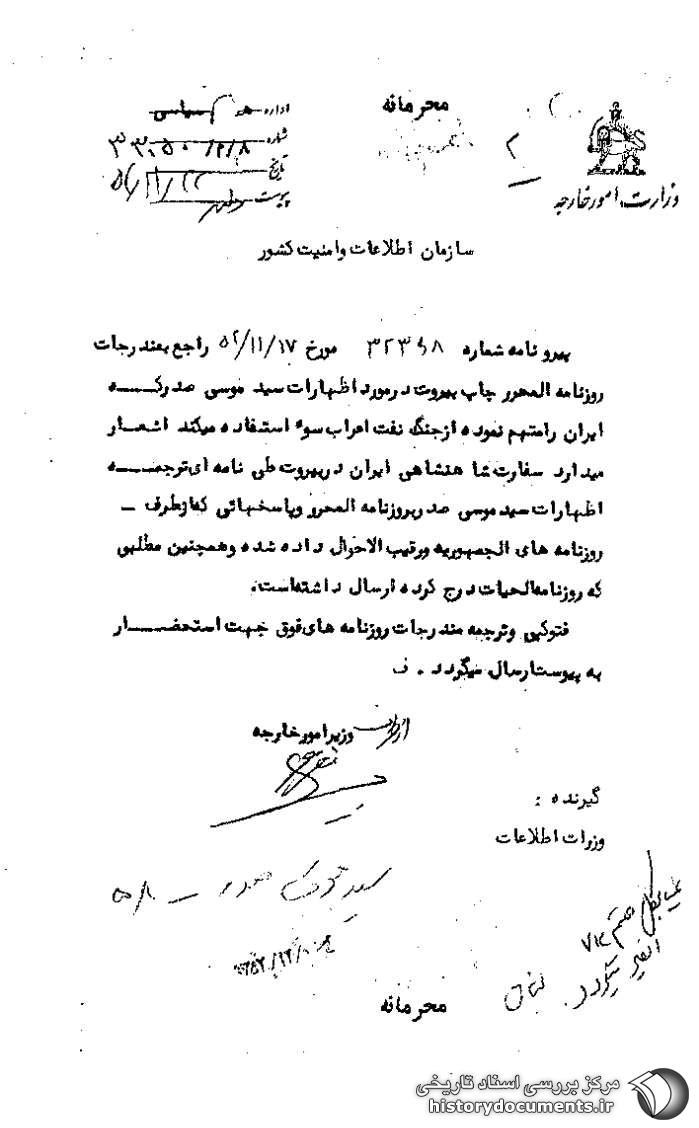 محرمانه
وزارت امور خارجه
اداره هشتم سیاسی
شماره
تاریخ
پیوست
سازمان اطلاعات وامنیت کشور
پیرو نامه شماره مورخ ۵۲/۱۱/۱۷ راجع بمندرجات
روزنامه المحرر چاپ بیروت در مورد اظهارات سید موسی صدر که
ایران رامتهم نموده ازجنگ نفت اعراب سوء استفاده میکند اشعار
میدارد سفارت شاهنشاهی ایران دربیروت طی نامه ای ترجمه
اظهارات سید موسی صدر بروزنامه المحرر وپاسخهائی که ازطرف ـ
روزنامه های الجمهوریه ورقیب الاحوال داده شده وهمچنین مطلبی
که روزنامه الحیات درج کرده ارسال داشته است.
فتوکپی وترجمه مندرجات روزنامه های فوق جهت استحضار
به پیوست ارسال میگردد . ف
ازطرف وزیر امور خارجه
گیرنده :
وزرات اطلاعات
سید موسی صدر
لبنان
محرمانه
مرکز بررسی اسناد تاریخی
historydocuments.ir